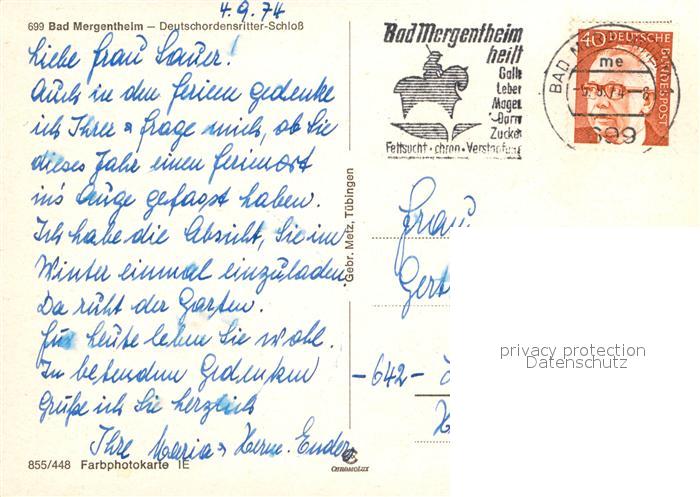 4.9.74
699 Bad Mergentheim – Deutschordensritter-Schloß
Liebe Frau Sauer!
Auch in den Ferien gedenke
ich Ihrer & frage mich, ob Sie
dieses Jahr einen Ferienort
ins Auge gefasst haben.
Ich habe die Absicht, Sie im
Winter einmal einzuladen
Da ruht der Garten.
Für heute leben Sie wohl.
In betendem Gedenken
Grüße ich Sie herzlich
Ihre Maria & Herm. Ender
855/448 Farbphotokarte IE
Gebr. Metz, Tübingen
CHROMOLUX
Bad Mergentheim
heilt
Galle
Leber
Magen
Darm
Zucker
Fettsucht · chron · Verstopfung
40 DEUTSCHE
BUNDESPOST
BAD
me
699
Frau
Gert
-642-
privacy protection
Datenschutz